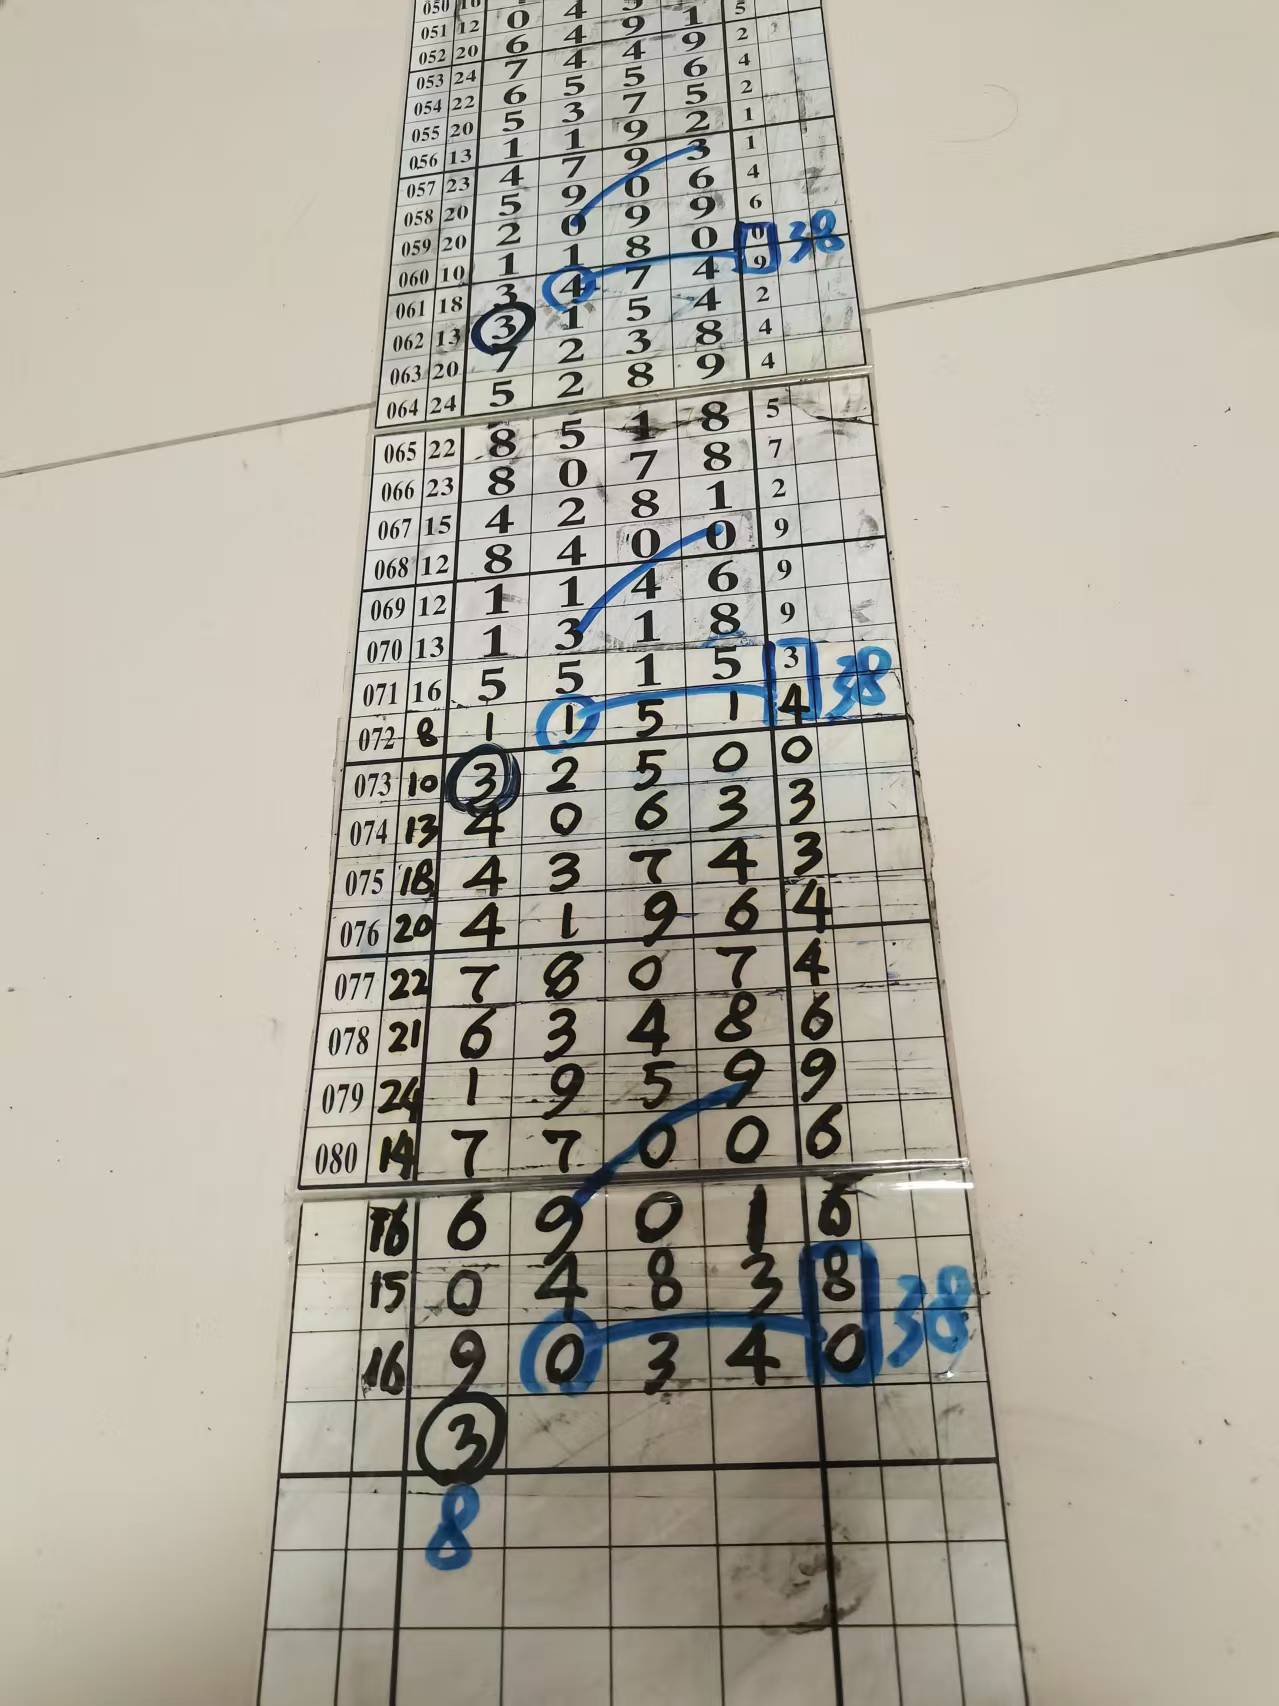 050 16
051 12 0 4 9 1 5
052 20 6 4 9 9 2
053 24 7 4 4 6 4
054 22 6 5 5 5 2
055 20 5 3 7 2 1
056 13 1 1 9 3 1
057 23 4 7 9 6 4
058 20 5 9 0 9 6
059 20 2 0 9 0 0 38
060 10 1 1 8 4 9
061 18 3 4 7 4 2
062 13 3 1 5 8 4
063 20 7 2 3 9 4
064 24 5 2 8
065 22 8 5 1 8 5
066 23 8 0 7 8 7
067 15 4 2 8 1 2
068 12 8 4 0 0 9
069 12 1 1 4 6 9
070 13 1 3 1 8 9
071 16 5 5 1 5 3 38
072 8 1 1 5 1 4
073 10 3 2 5 0 0
074 13 4 0 6 3 3
075 18 4 3 7 4 3
076 20 4 1 9 6 4
077 22 7 8 0 7 4
078 21 6 3 4 8 6
079 24 1 9 5 9 9
080 14 7 7 0 0 6
16 6 9 0 1 6
15 0 4 8 3 8 38
16 9 0 3 4 0
3
8